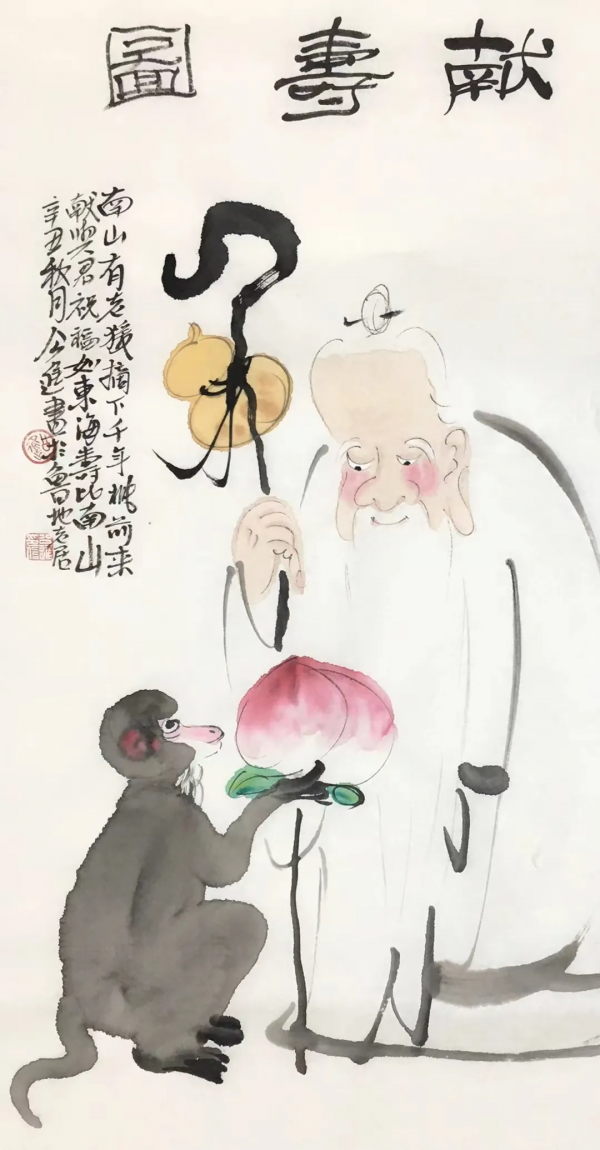 献壽圖
南山有老猿摘下千年桃前来
献與君祝福如東海壽比南山
辛丑秋月公進畫於魯地老居